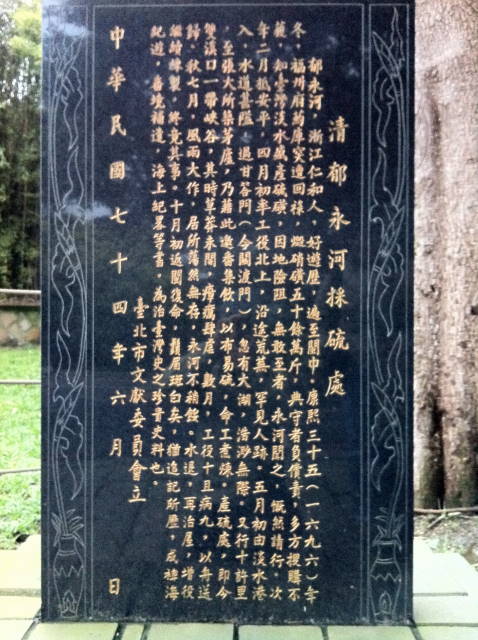 清郁永河採硫處
郁永河,浙江仁和人,好遊歷,遍至閩中。康熙三十五(一六九六)年
冬,福州府葯庫突遭回祿,燬硝磺五十餘萬斤,典守者負償責,多方搜購不
獲,知臺灣淡水盛產硫磺,因地險阻,無敢至者,永河聞之,慨然請行。次
年二月抵安平,四月初率工役北上,沿途荒蕪,罕見人跡。五月初由淡水港
入,水道甚隘,過甘答門(今關渡門),忽有大湖,浩渺無際。又行十許里
,至張大所築茅廬,乃藉此邀番集飲,以布易硫,命工煮煉。產硫處,即今
雙溪口一帶峽谷,其時草莽未闢,瘴癘肆虐,數月,工役十且病九,以舟送
歸。秋七月,風雨大作,居所蕩然無存,永河不稍餒。水退,再治屋,增役
繼續煉製,終竟其事。十月初返閩復命,鬚眉斑白矣,猶追記所歷,成裨海
紀遊,番境補遺,海上紀畧等書,為治臺灣史之珍貴史料也。
臺北市文獻委員會立
中華民國七十四年六月 日